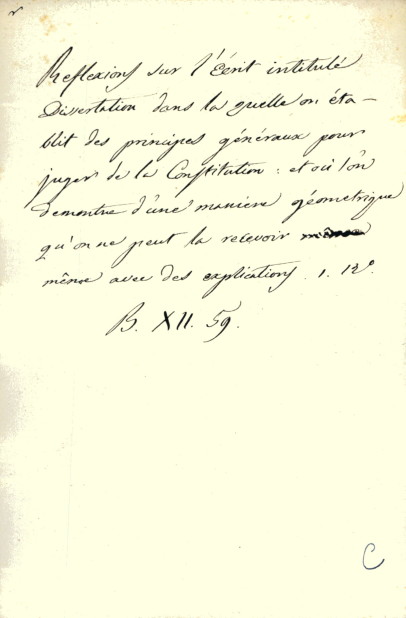 Reflexions sur l'Ecrit intitulé
Dissertation dans la quelle on éta-
blit des principes généraux pour
juger de la Constitution : et où l'on
demontre d'une maniere géometrique
qu'on ne peut la recevoir
même avec des explications. 1. 12°.
B. XII. 59.
C